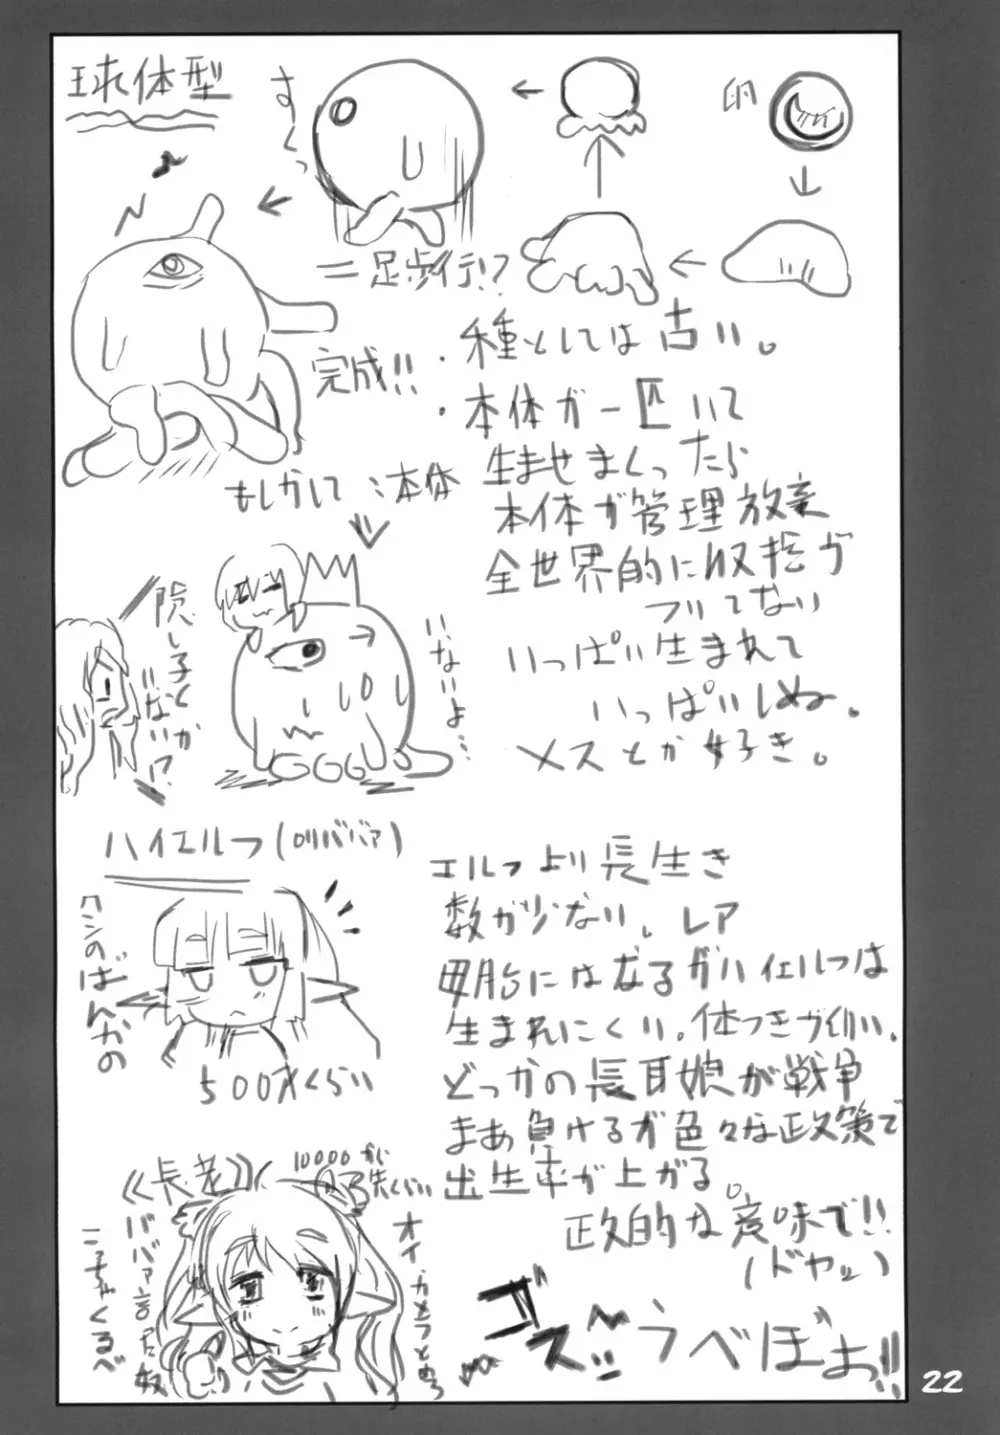 球体型
卵
すくっ
二足歩行!?
完成!!
・種としては古い。
・本体が一匹いて
生ませまくったら
本体が管理放棄
全世界的に収拾が
ついてない
いっぱい生まれて
いっぱいしぬ。
メスとか好き。
もしかして:本体
隠し子とか
いない!?
いないよ…
ハイエルフ(ロリババァ)
エルフより長生き
数が少ない。レア
母胎にはなるがハイエルフは
生まれにくい。体つきが幼い。
どっかの長耳娘が戦争
まあ負けるが色々な政策で
出生率が上がる。
政的な意味で!!
(ドヤッ)
500才くらい
《長老》
10000から
オイ、カとつとめろ
ババァ言た奴
こっちゃくるべ
ゴズッ
うべぼぉっ!!
22